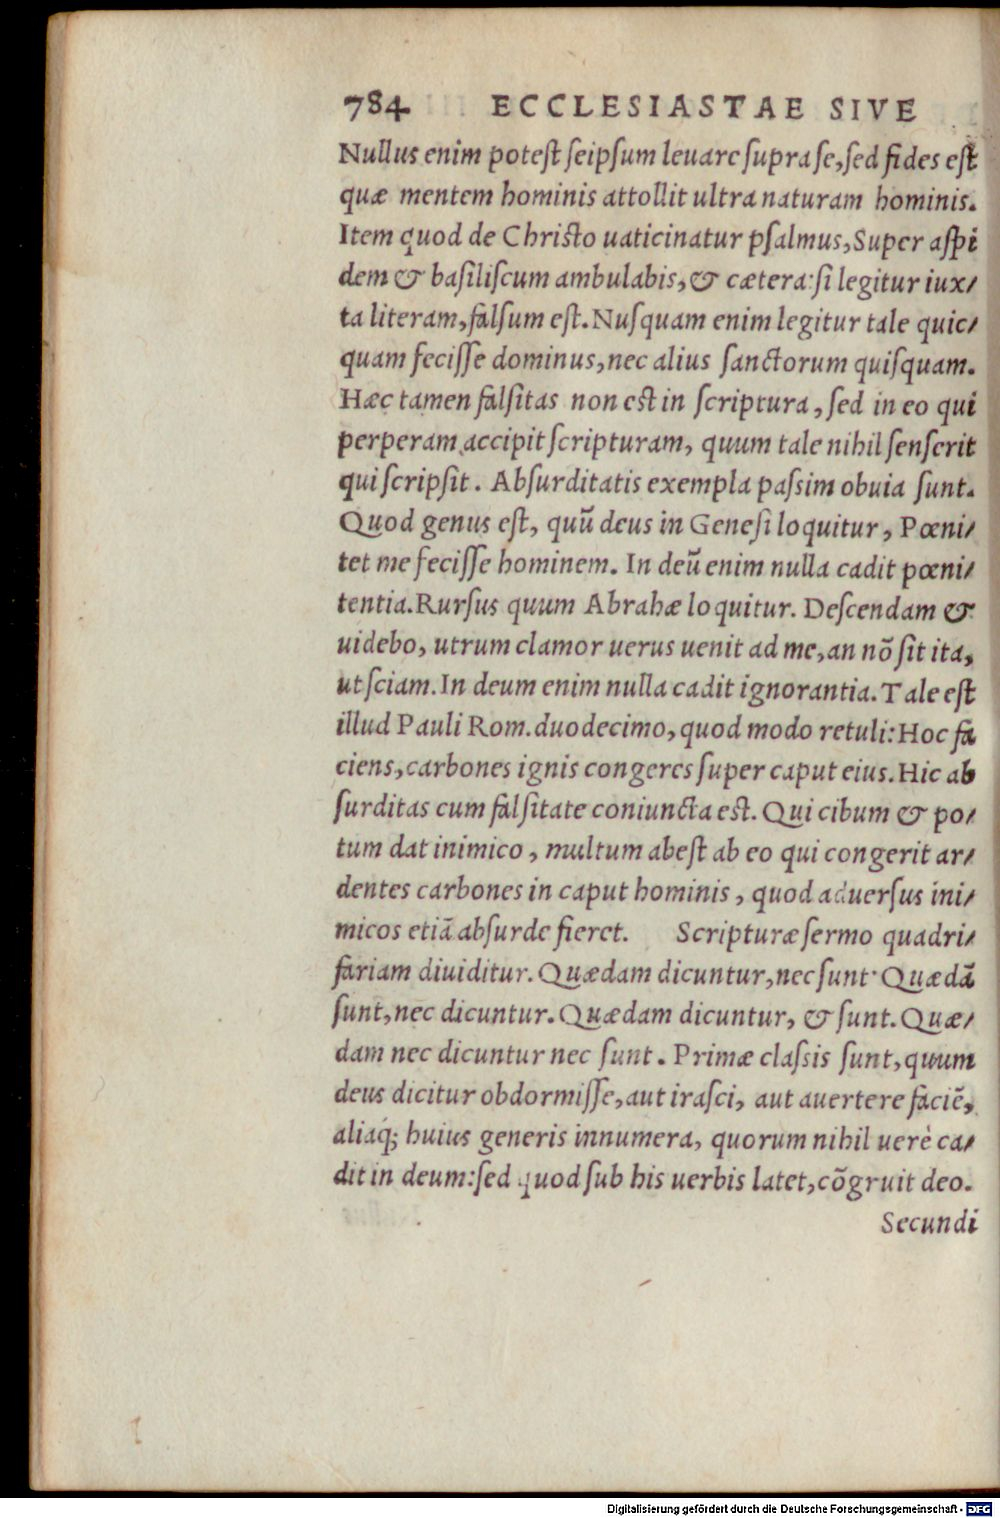 784 ECCLESIASTAE SIVE
Nullus enim potest seipsum leuare supra se, sed fides est
quæ mentem hominis attollit ultra naturam hominis.
Item quod de Christo uaticinatur psalmus, Super aspi
dem & basiliscum ambulabis, & cætera: si legitur iux/
ta literam, falsum est. Nusquam enim legitur tale quic/
quam fecisse dominus, nec alius sanctorum quisquam.
Hæc tamen falsitas non est in scriptura, sed in eo qui
perperam accipit scripturam, quum tale nihil senserit
qui scripsit. Absurditatis exempla passim obuia sunt.
Quod genus est, quū deus in Genesi loquitur, Pœni/
tet me fecisse hominem. In deū enim nulla cadit pœni/
tentia. Rursus quum Abrahæ loquitur. Descendam &
uidebo, utrum clamor uerus uenit ad me, an nō sit ita,
ut sciam. In deum enim nulla cadit ignorantia. Tale est
illud Pauli Rom. duodecimo, quod modo retuli: Hoc fa
ciens, carbones ignis congeres super caput eius. Hic ab
surditas cum falsitate coniuncta est. Qui cibum & po/
tum dat inimico, multum abest ab eo qui congerit ar/
dentes carbones in caput hominis, quod aduersus ini/
micos etiā absurde fieret. Scripturæ sermo quadri/
fariam diuiditur. Quædam dicuntur, nec sunt· Quædā
sunt, nec dicuntur. Quædam dicuntur, & sunt. Quæ/
dam nec dicuntur nec sunt. Primæ classis sunt, quum
deus dicitur obdormisse, aut irasci, aut auertere faciē,
aliaq; huius generis innumera, quorum nihil uerè ca/
dit in deum: sed quod sub his uerbis latet, cōgruit deo.
Secundi
Digitalisierung gefördert durch die Deutsche Forschungsgemeinschaft - DFG